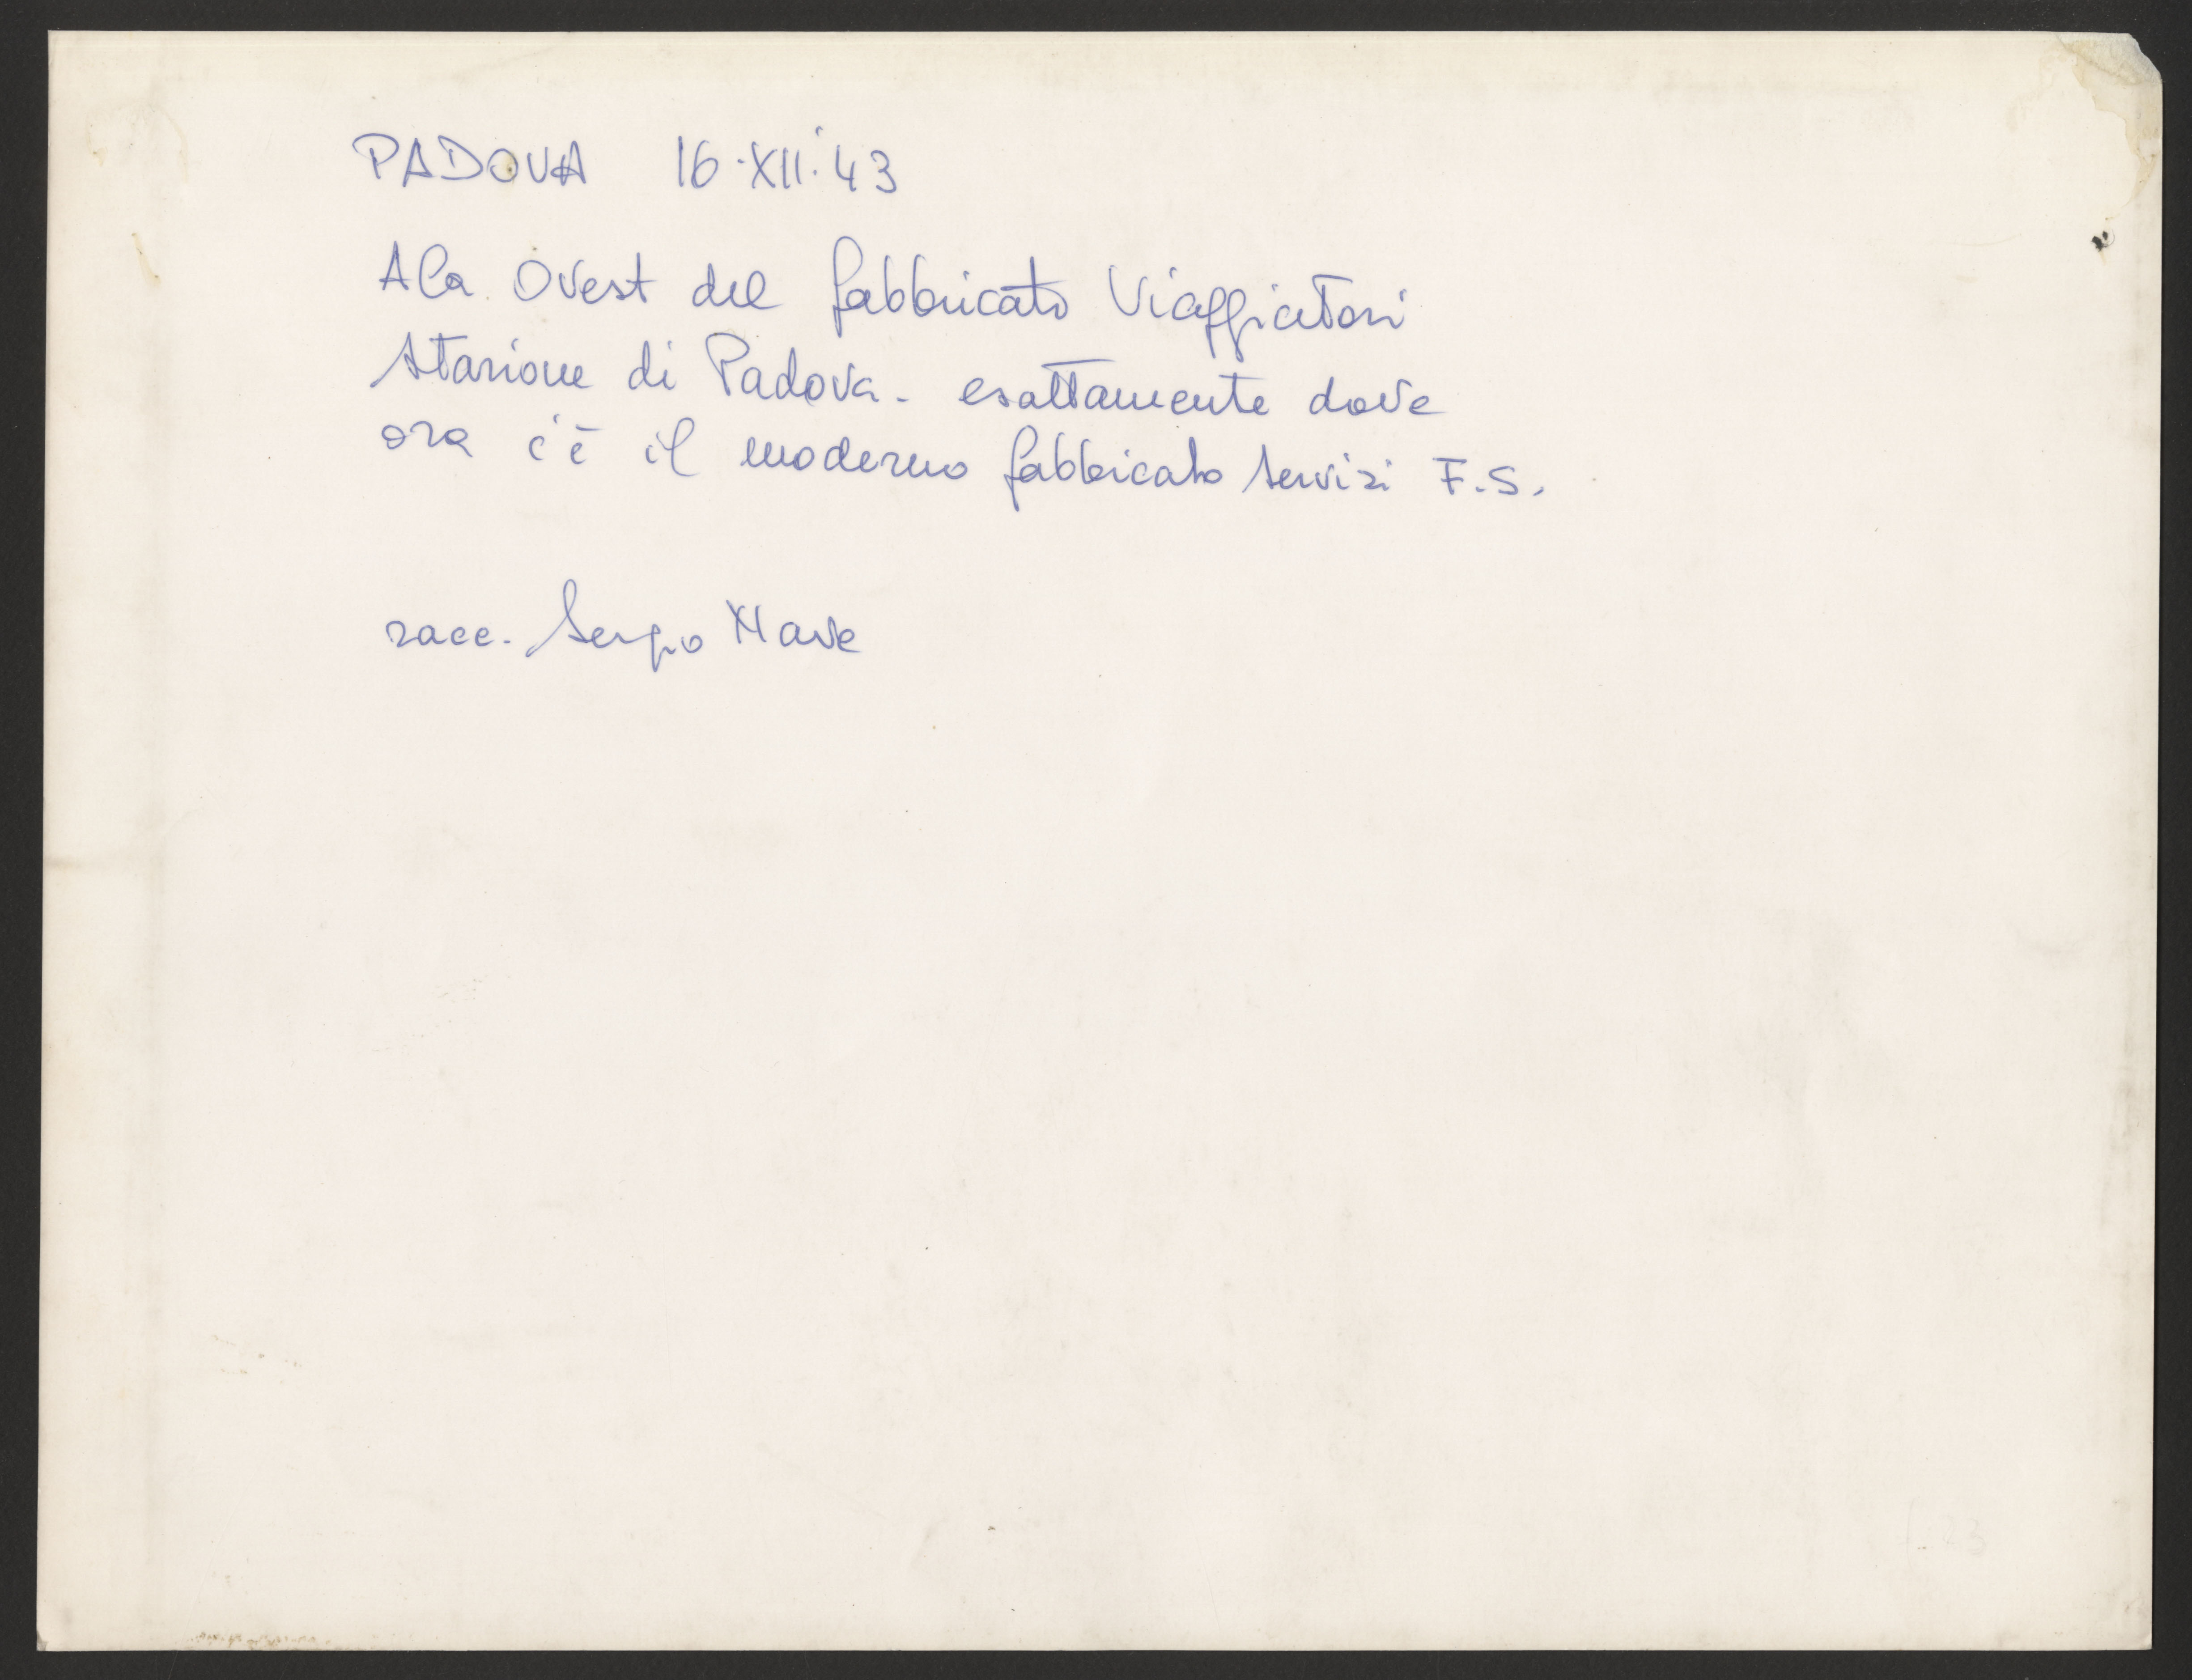 PADOVA 16·XII·43
Ala Ovest del fabbricato Viaggiatori
Stazione di Padova - esattamente dove
ora c'è il moderno fabbricato servizi F.S.
racc. Sergio Nave